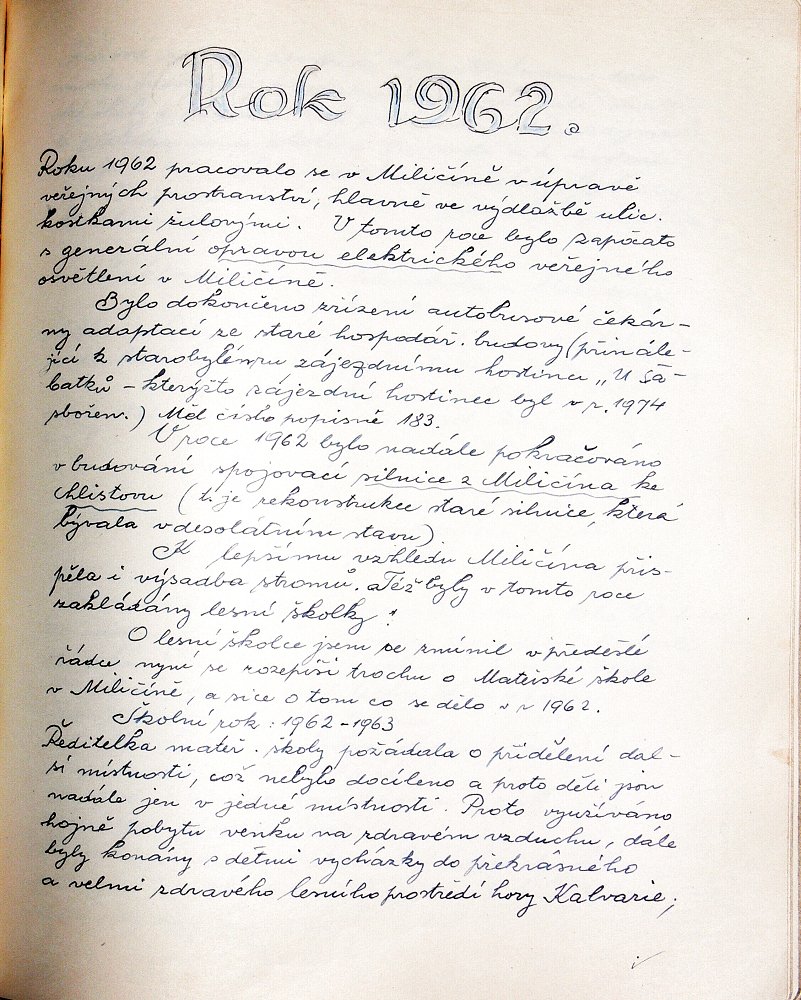 Rok 1962.
Roku 1962 pracovalo se v Miličíně v úpravě
veřejných prostranství, hlavně ve výdlažbě ulic.
kostkami žulovými. V tomto roce bylo započato
s generální opravou elektrického veřejného
osvětlení v Miličíně.
Bylo dokončeno zřízení autobusové čekár-
ny adaptací ze staré hospodář. budovy (přinále-
jící k starobylému zájezdnímu hostinci „U Sa-
batků – kterýžto zájezdní hostinec byl v r. 1974
sbořen.) Měl číslo popisné 183.
V roce 1962 bylo nadále pokračováno
v budování spojovací silnice z Miličína ke
Chlistovu (t. je rekonstrukce staré silnice, která
bývala v desolátním stavu).
K lepšímu vzhledu Miličína přis-
pěla i výsadba stromů. Též byly v tomto roce
zakládány lesní školky!
O lesní školce jsem se zmínil v předešlé
řádce nyní se rozepíši trochu o Mateřské škole
v Miličíně, a sice o tom co se dělo v r 1962.
Školní rok: 1962-1963
Ředitelka mateř. školy požádala o přidělení dal-
ší místnosti, což nebylo docíleno a proto děti jsou
nadále jen v jedné místnosti. Proto využíváno
hojně pobytu venku na zdravém vzduchu, dále
byly konány s dětmi vycházky do překrásného
a velmi zdravého lesního prostředí hory Kalvarie;